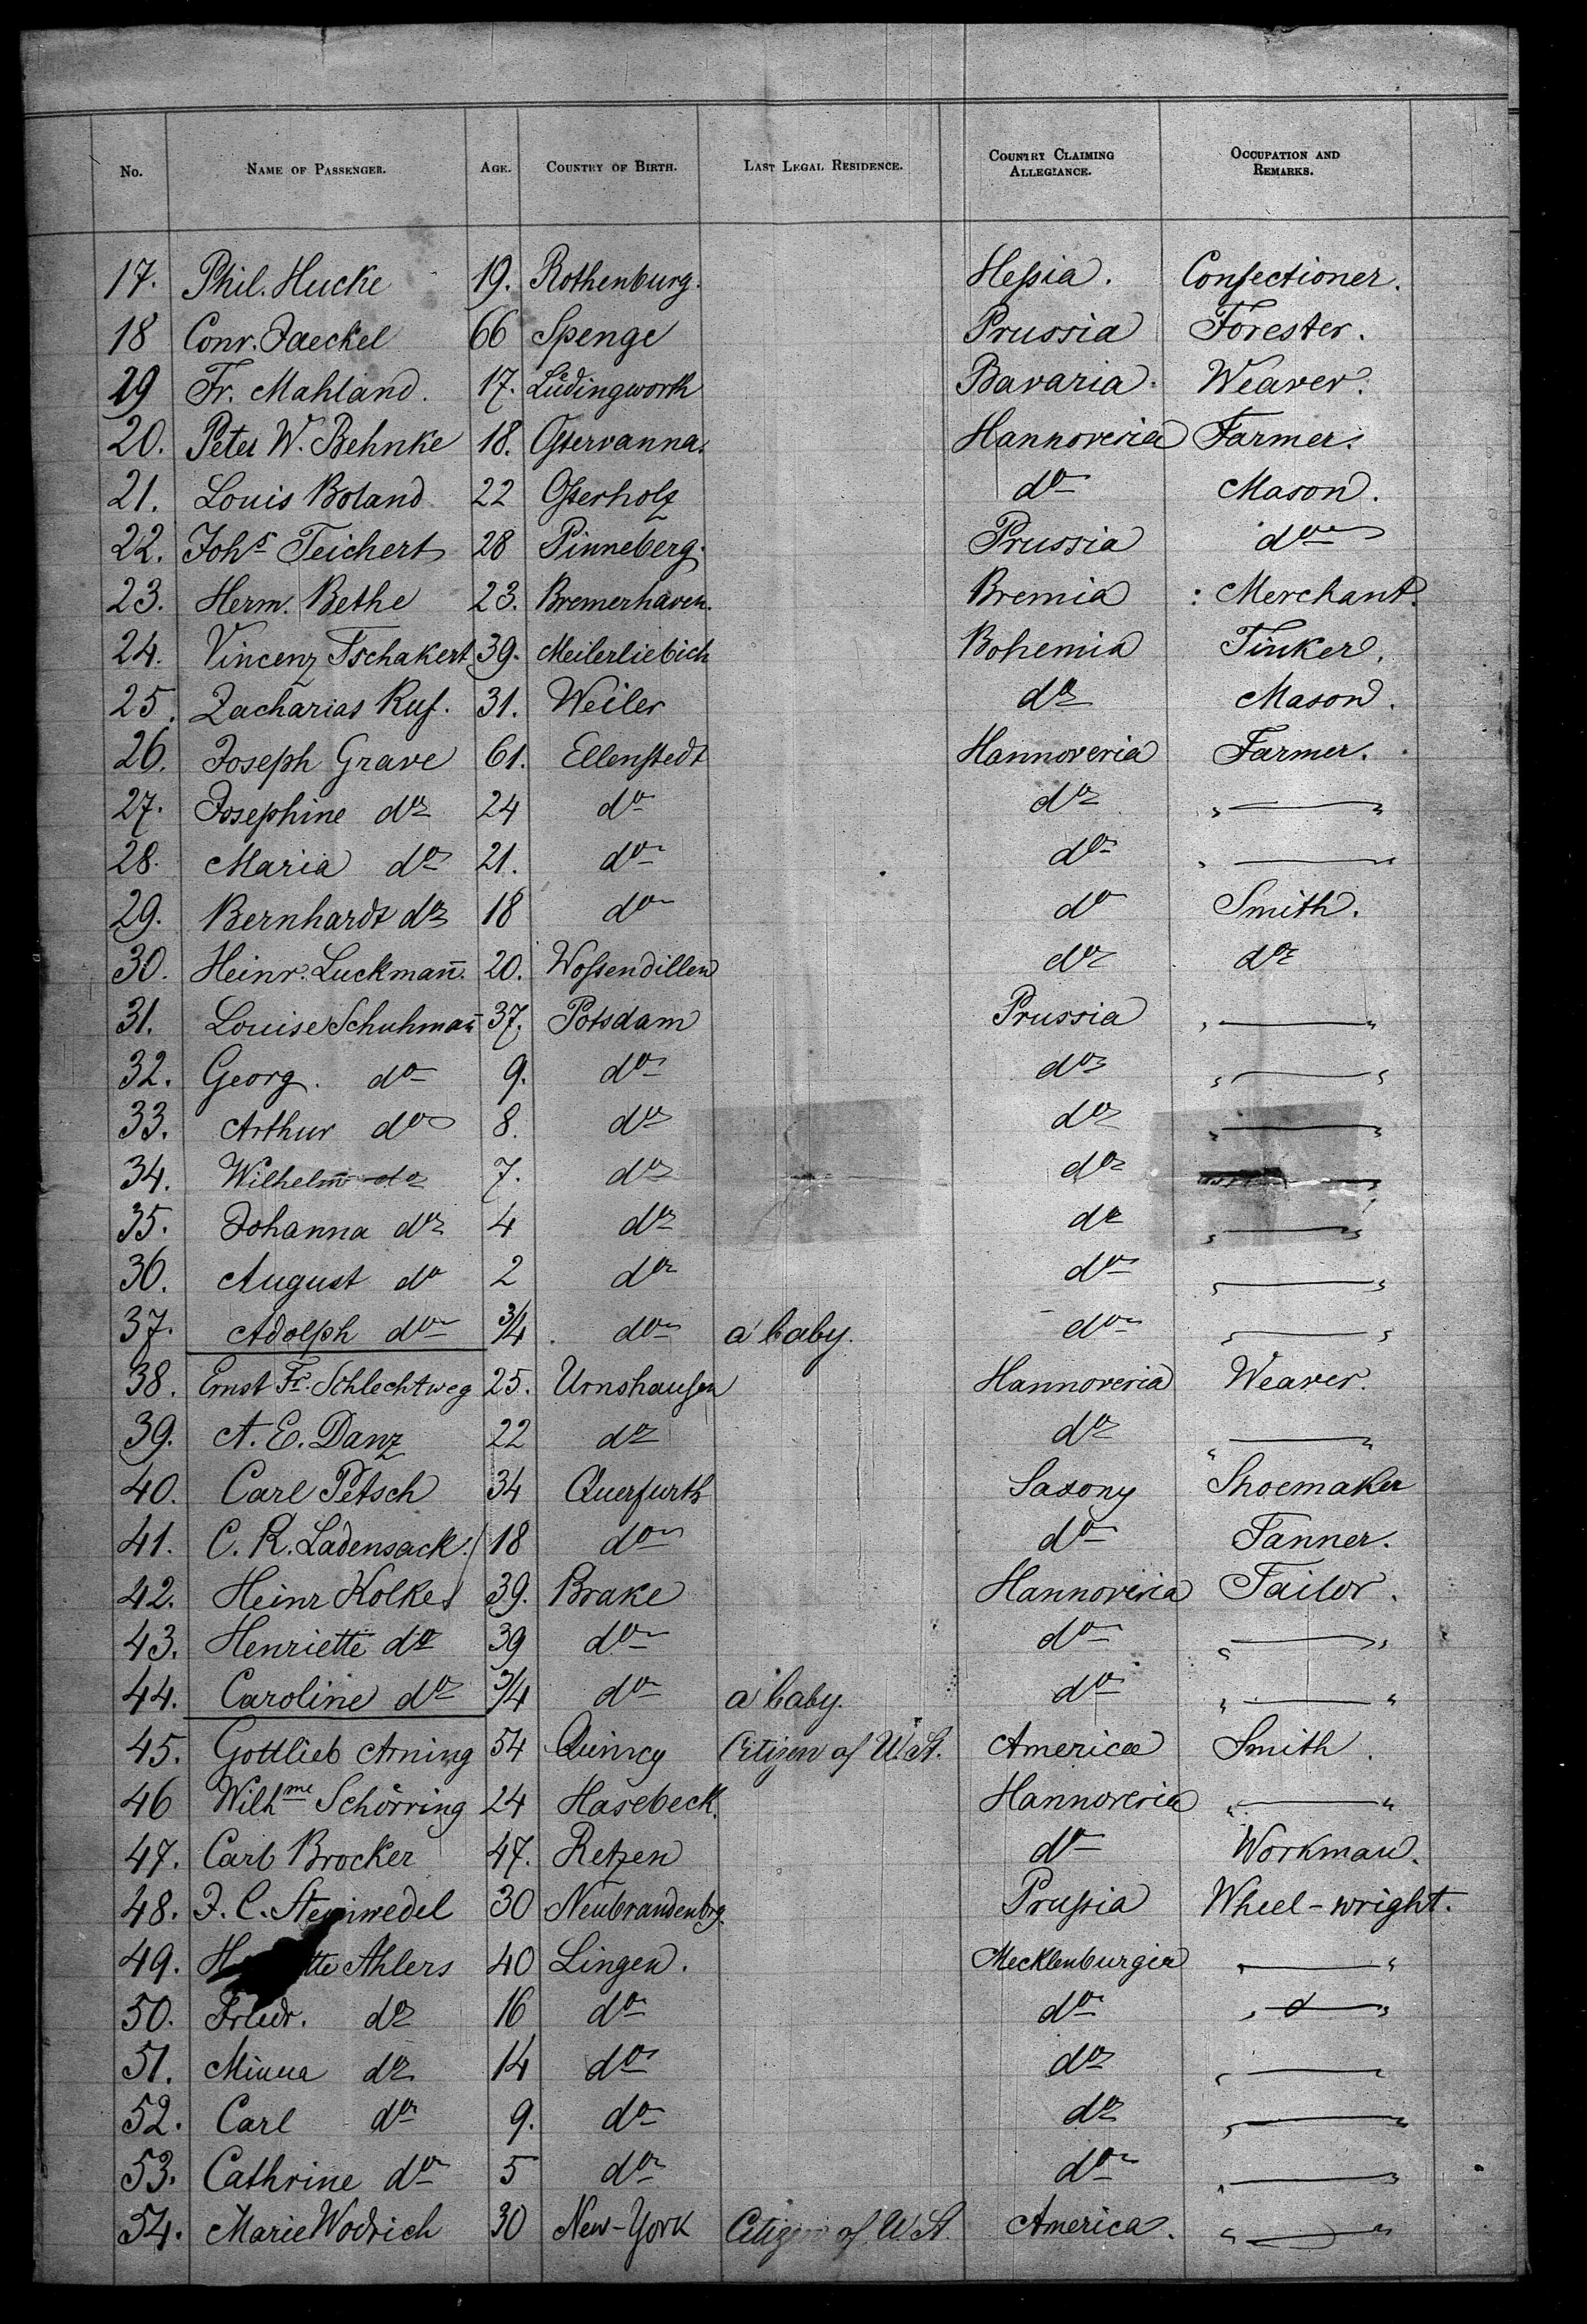 No. NAME OF PASSENGER. AGE. COUNTRY OF BIRTH. LAST LEGAL RESIDENCE. COUNTRY CLAIMING ALLEGIANCE. OCCUPATION AND REMARKS.
17. Phil. Hucke 19. Rothenburg. Hessia. Confectioner.
18 Conr. Jaeckel 66 Spenge Prussia Forester.
19 Fr. Mahland. 17. Lüdingworth Bavaria. Weaver.
20. Peter W. Behnke 18. Ostervanna. Hannoveria Farmer.
21. Louis Boland 22 Osterholz do Mason.
22. Johs Teichert 28 Pinneberg. Prussia do
23. Herm. Bethe 23. Bremerhaven. Bremia : Merchant.
24. Vincenz Tschakert 39. Meilerliebich Bohemia Tinker.
25. Zacharias Ruf. 31. Weiler do Mason.
26. Joseph Grave 61. Ellenstedt Hannoveria Farmer.
27. Josephine do 24 do do " — "
28. Maria do 21. do do " — "
29. Bernhardt do 18 do do Smith.
30. Heinr. Luckman̄. 20. Wossendillen do do
31. Louise Schuhman̄ 37. Potsdam Prussia " — "
32. Georg. do 9. do do " — "
33. Arthur do 8. do do " — "
34. Wilhelm̄ do 7. do do —
35. Johanna do 4 do do " — "
36. August do 2 do do " — "
37. Adolph do 3/4 do a baby. do " — "
38. Ernst Fr. Schlechtweg 25. Urnshausen Hannoveria Weaver.
39. A. E. Danz 22 do do " — "
40. Carl Petsch 34 Querfurth Saxony Shoemaker
41. C. R. Ladensack. 18 do do Tanner.
42. Heinr Kolke 39. Brake Hannoveria Tailor.
43. Henriette do 39 do do " — "
44. Caroline do 3/4 do a baby. do " — "
45. Gottlieb Arning 54 Quincy Citizen of U. St. America Smith.
46 Wilhme Schörring 24 Hasebeck. Hannoveria " — "
47. Carl Brocker 47. Retzen do Workman.
48. J. C. Steinwedel 30 Neubrandenbrg. Prussia Wheel-wright.
49. Ahlers 40 Lingen. Mecklenburgia " — "
50. Friedr. do 16 do do " — "
51. Minna do 14 do do " — "
52. Carl do 9. do do " — "
53. Cathrine do 5 do do " — "
54. Marie Wodrich 30 New-York Citizen of U. St. America. " — "